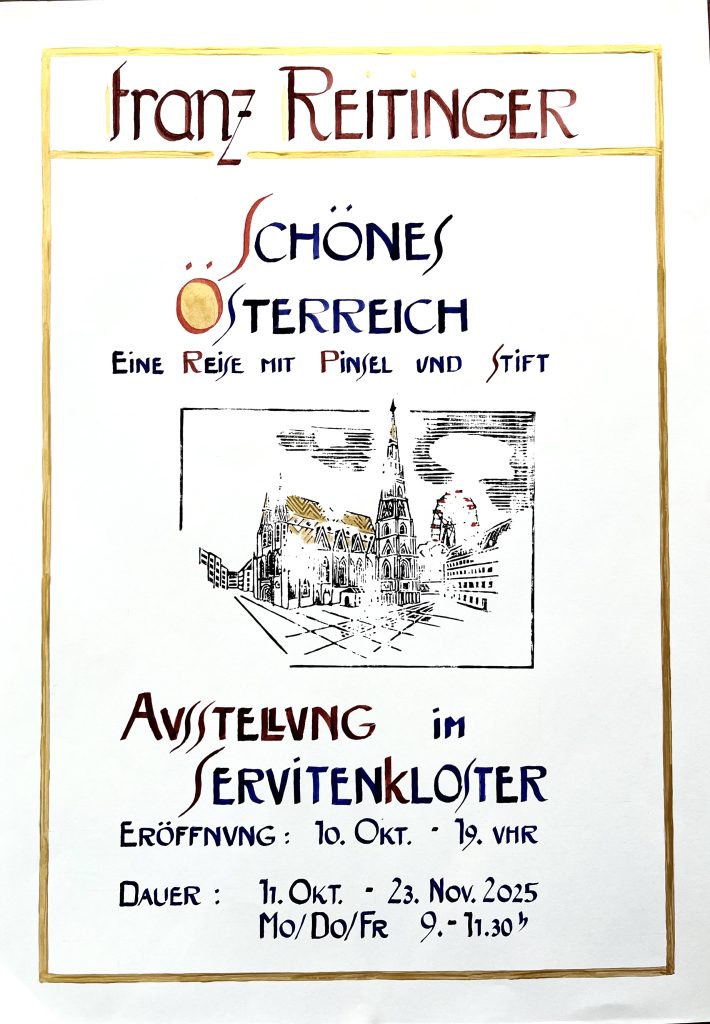 Franz REITINGER
SCHÖNES
ÖSTERREICH
EINE REISE MIT PINSEL UND STIFT
AVSSTELLVNG im
SERVITENKLOSTER
ERÖFFNVNG: 10. OKT. - 19. VHR
DAUER: 11. OKT. - 23. NOV. 2025
MO/DO/FR 9.-11.30 h